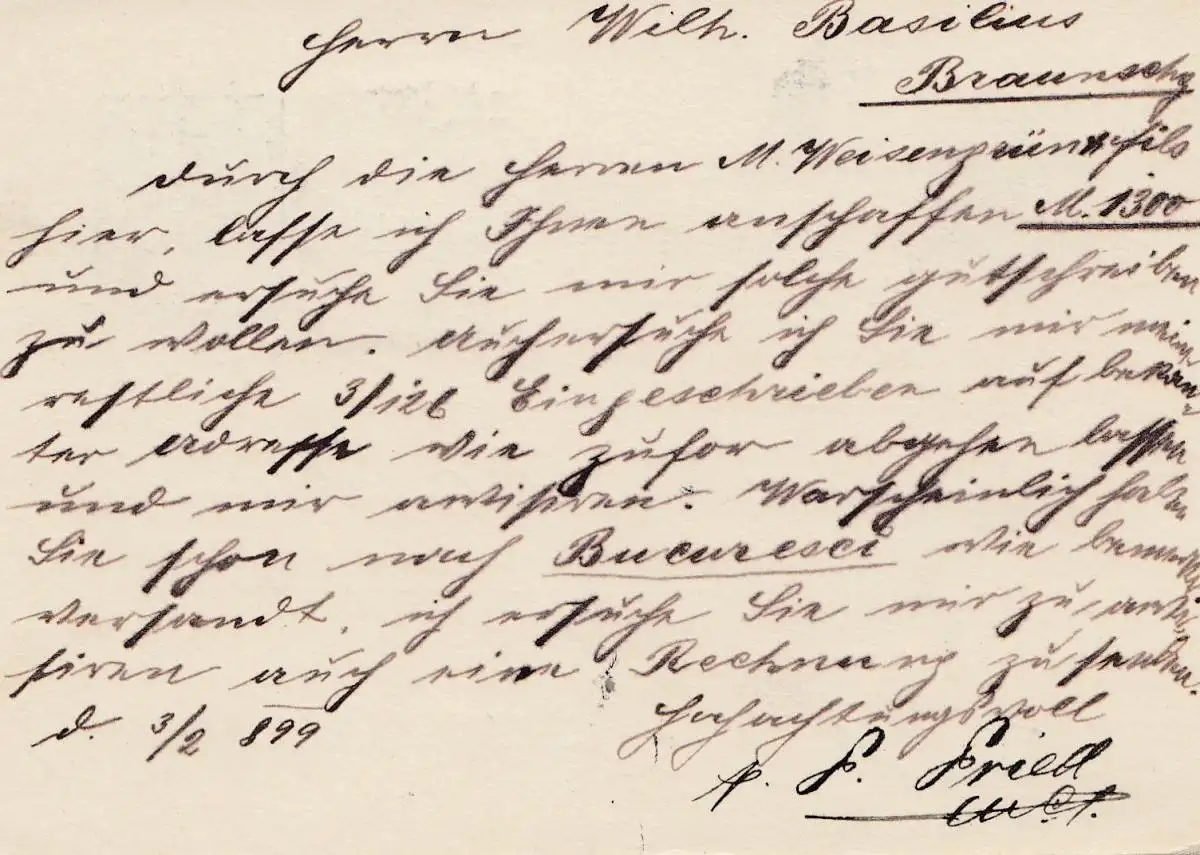 Herrn Wilh. Basilius
Braunschg
Durch die Herren M. Weisengrün & fils
hier, lasse ich Ihnen anschaffen M. 1300
und ersuche Sie mir solche gutschreiben
zu wollen. Auch ersuche ich Sie mir meine
restliche 3/126 Eingeschrieben auf bekan-
ter Adresse wie zufor abgehen lassen
und mir avisiren. Warscheinlich haben
Sie schon nach Bucuresci wie bemerkt
versandt, ich ersuche Sie mir zu avi-
siren auch eine Rechnung zu senden.
d. 3/2 899 Hochachtungsvoll
p. S. Fried